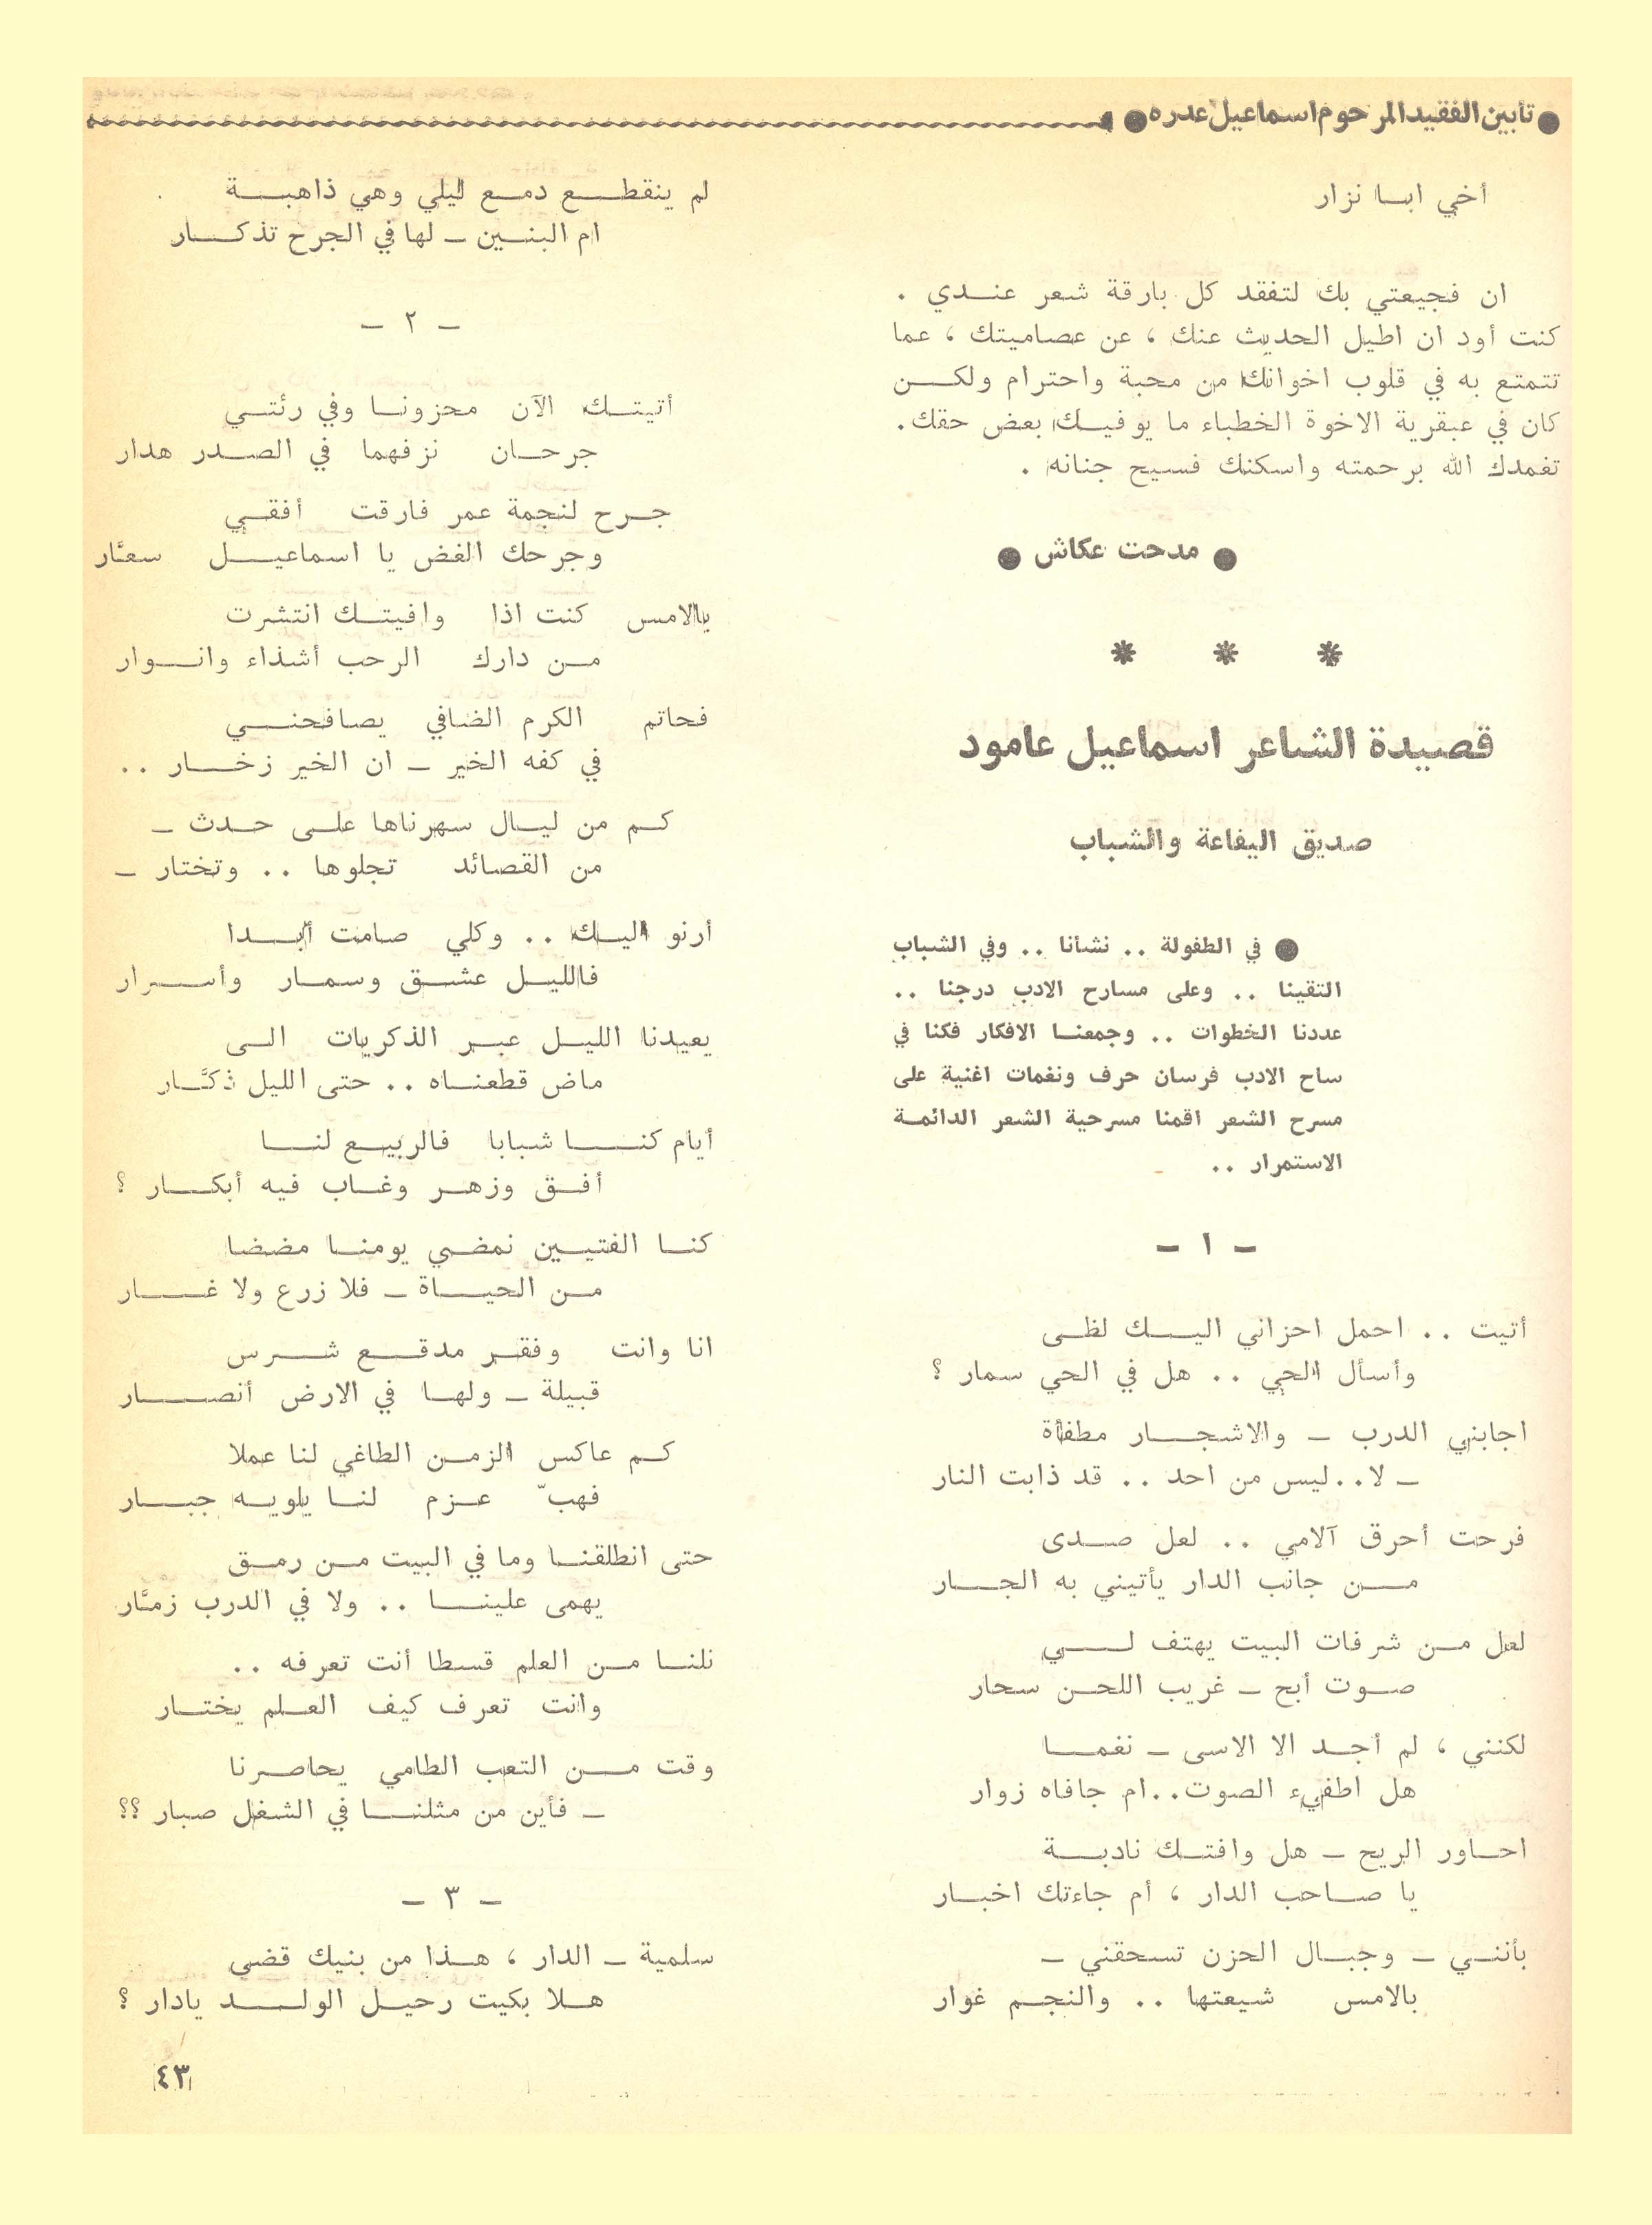 ● تأبين الفقيد المرحوم اسماعيل عدره ●
أخي ابا نزار
ان فجيعتي بك لتفقد كل بارقة شعر عندي .
كنت أود ان اطيل الحديث عنك ، عن عصاميتك ، عما
تتمتع به في قلوب اخوانك من محبة واحترام ولكن
كان في عبقرية الاخوة الخطباء ما يوفيك بعض حقك .
تغمدك الله برحمته واسكنك فسيح جنانه .
● مدحت عكاش ●
* * *
قصيدة الشاعر اسماعيل عامود
صديق اليفاعة والشباب
● في الطفولة .. نشأنا .. وفي الشباب
التقينا .. وعلى مسارح الادب درجنا ..
عددنا الخطوات .. وجمعنا الافكار فكنا في
ساح الادب فرسان حرف ونغمات اغنية على
مسرح الشعر اقمنا مسرحية الشعر الدائمة
الاستمرار ..
– ١ –
أتيت .. احمل احزاني اليك لظى
وأسأل الحي .. هل في الحي سمار ؟
اجابني الدرب – والاشجار مطفأة
– لا .. ليس من احد .. قد ذابت النار
فرحت أحرق آلامي .. لعل صدى
من جانب الدار يأتيني به الجار
لعل من شرفات البيت يهتف لي
صوت أبح – غريب اللحن سحار
لكنني ، لم أجد الا الاسى – نغما
هل اطفيء الصوت .. ام جافاه زوار
احاور الريح – هل وافتك نادبة
يا صاحب الدار ، أم جاءتك اخبار
بأنني – وجبال الحزن تسحقني –
بالامس شيعتها .. والنجم غوار
لم ينقطع دمع ليلي وهي ذاهبة
ام البنين – لها في الجرح تذكار
– ٢ –
أتيتك الآن محزونا وفي رئتي
جرحان نزفهما في الصدر هدار
جرح لنجمة عمر فارقت أفقي
وجرحك الغض يا اسماعيل سعَّار
بالامس كنت اذا وافيتك انتشرت
من دارك الرحب أشذاء وانوار
فحاتم الكرم الضافي يصافحني
في كفه الخير – ان الخير زخار ..
كم من ليال سهرناها على حدث –
من القصائد تجلوها .. وتختار –
أرنو اليك .. وكلي صامت أبدا
فالليل عشق وسمار وأسرار
يعيدنا الليل عبر الذكريات الى
ماض قطعناه .. حتى الليل ذكَّار
أيام كنا شبابا فالربيع لنا
أفق وزهر وغاب فيه أبكار ؟
كنا الفتيين نمضي يومنا مضضا
من الحياة – فلا زرع ولا غار
انا وانت وفقر مدقع شرس
قبيلة – ولها في الارض أنصار
كم عاكس الزمن الطاغي لنا عملا
فهبّ عزم لنا يلويه جبار
حتى انطلقنا وما في البيت من رمق
يهمى علينا .. ولا في الدرب زمَّار
نلنا من العلم قسطا أنت تعرفه ..
وانت تعرف كيف العلم يختار
وقت من التعب الطامي يحاصرنا
– فأين من مثلنا في الشغل صبار ؟؟
– ٣ –
سلمية – الدار ، هذا من بنيك قضى
هلا بكيت رحيل الولد يادار ؟
٤٣